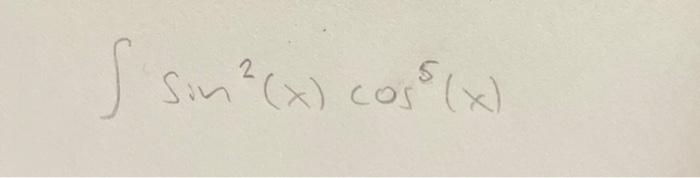 ∫ sin²(x) cos⁵(x)